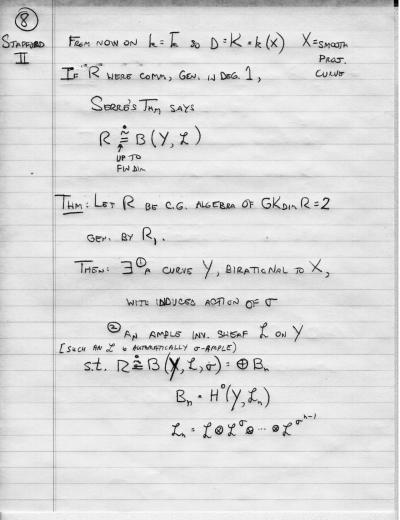 ⑧
STAFFORD
II
FROM NOW ON k = k̄ SO D = K = k(X) X = SMOOTH
PROJ.
CURVE
IF R WERE COMM, GEN. IN DEG. 1,
SERRE'S THM SAYS
R ≅̇ B(Y, ℒ)
↑
UP TO
FIN DIM
THM: LET R BE C.G. ALGEBRA OF GKDIM R = 2
GEN. BY R₁.
THEN: ∃ ① A CURVE Y, BIRATIONAL TO X,
WITH INDUCED ACTION OF σ
② AN AMPLE INV. SHEAF ℒ ON Y
[SUCH AN ℒ IS AUTOMATICALLY σ-AMPLE)
s.t. R ≅̇ B(Y, ℒ, σ) = ⊕ Bₙ
Bₙ = H⁰(Y, ℒₙ)
ℒₙ = ℒ ⊗ ℒ^σ ⊗ ··· ⊗ ℒ^σ^{n-1}